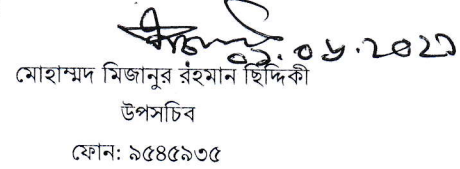 ০১.০৬.২০২১
মোহাম্মদ মিজানুর রহমান ছিদ্দিকী
উপসচিব
ফোন: ৯৫৪৫৯৩৫